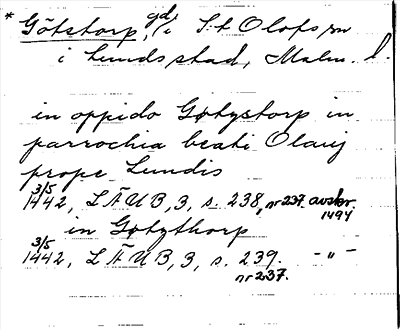 * Götstorp, gd, i S:t Olofs sn
i Lunds stad, Malm. l.
in oppido Gøtzstorp in
parrochia beati Olauj
prope Lundis
3/5
1442, LÄUB, 3, s. 238, nr 237. avskr. 1494
in Gøtzthorp
3/5
1442, LÄUB, 3, s. 239. -"-
nr 237.